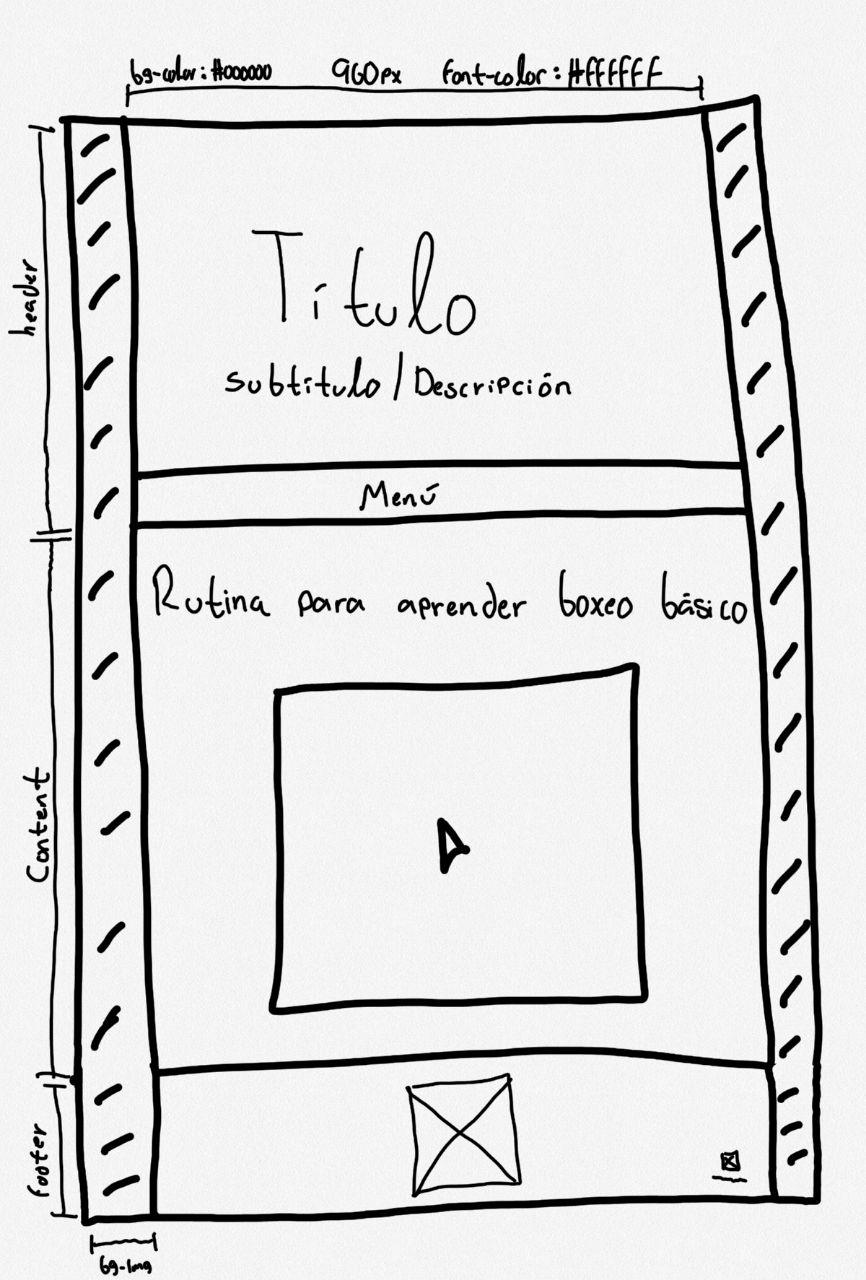 bg-color: #000000 960px font-color: #ffffff
header
Título
subtítulo/Descripción
Menú
Rutina para aprender boxeo básico
Content
footer
bg-img